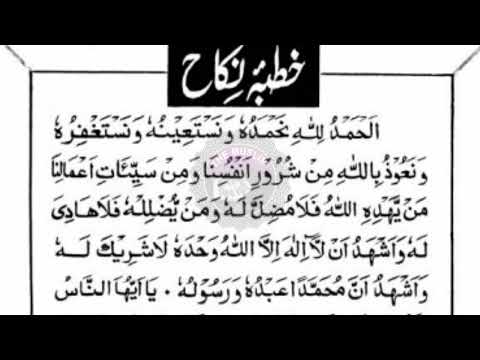 خطبۂ نِکاح
اَلْحَمْدُ لِلّٰهِ نَحْمَدُهٗ وَنَسْتَعِيْنُهٗ وَنَسْتَغْفِرُهٗ
وَنَعُوْذُ بِاللّٰهِ مِنْ شُرُوْرِ اَنْفُسِنَا وَمِنْ سَيِّئَاتِ اَعْمَالِنَا
مَنْ يَّهْدِهِ اللّٰهُ فَلَا مُضِلَّ لَهٗ وَمَنْ يُّضْلِلْهُ فَلَا هَادِىَ
لَهٗ وَاَشْهَدُ اَنْ لَّآ اِلٰهَ اِلَّا اللّٰهُ وَحْدَهٗ لَا شَرِيْكَ لَهٗ
وَاَشْهَدُ اَنَّ مُحَمَّدًا عَبْدُهٗ وَرَسُوْلُهٗ ۰ يَا اَيُّهَا النَّاسُ